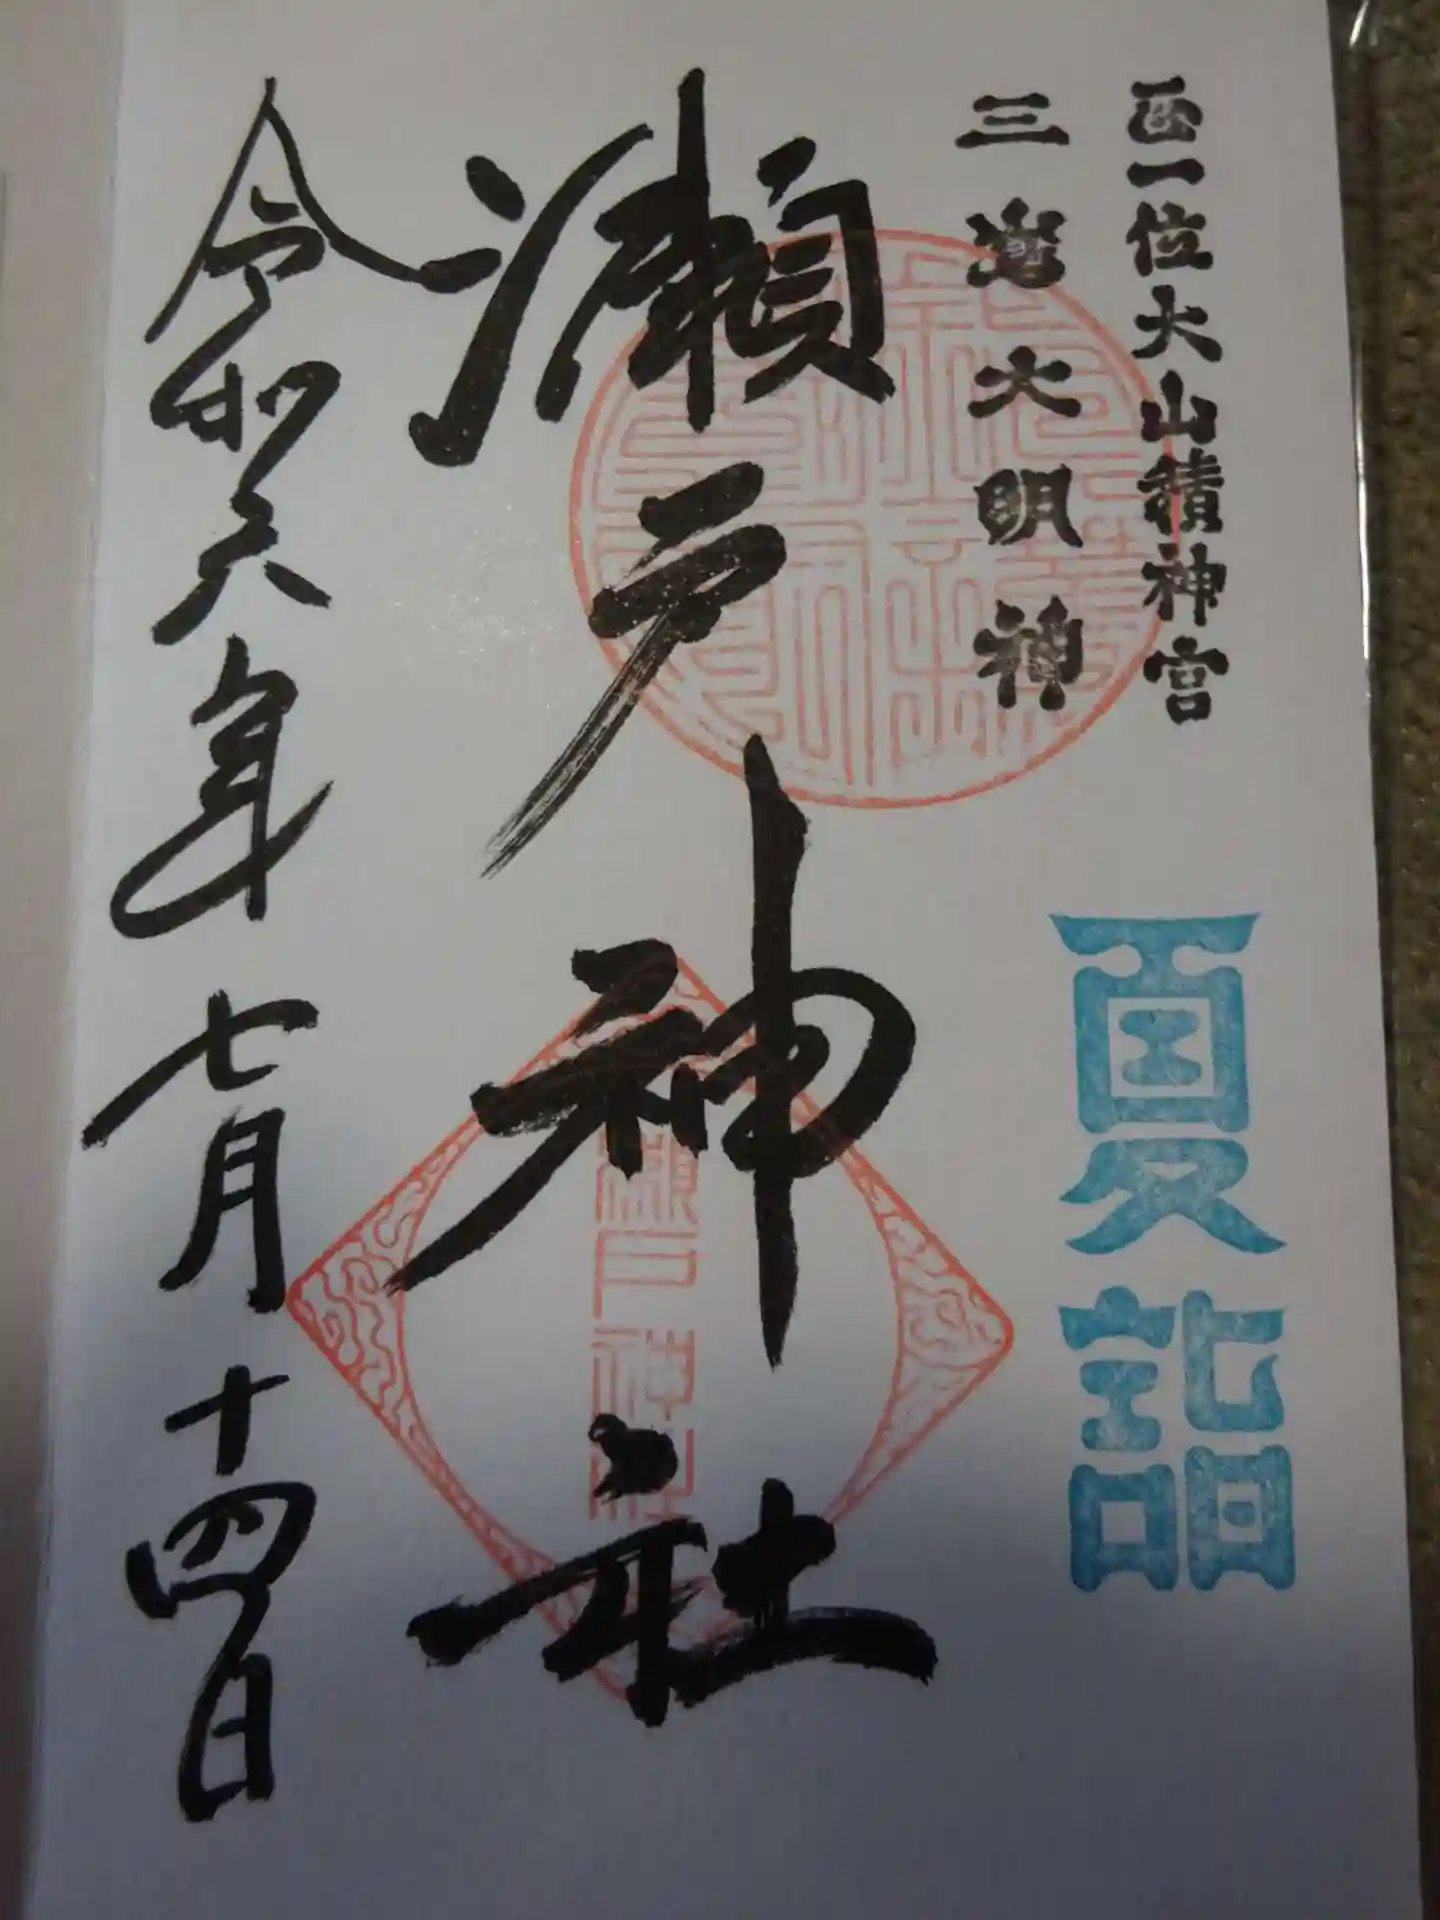 正一位大山積神宮
三嶌大明神
夏詣
瀬戸神社
瀬戸神社
令和六年七月十四日